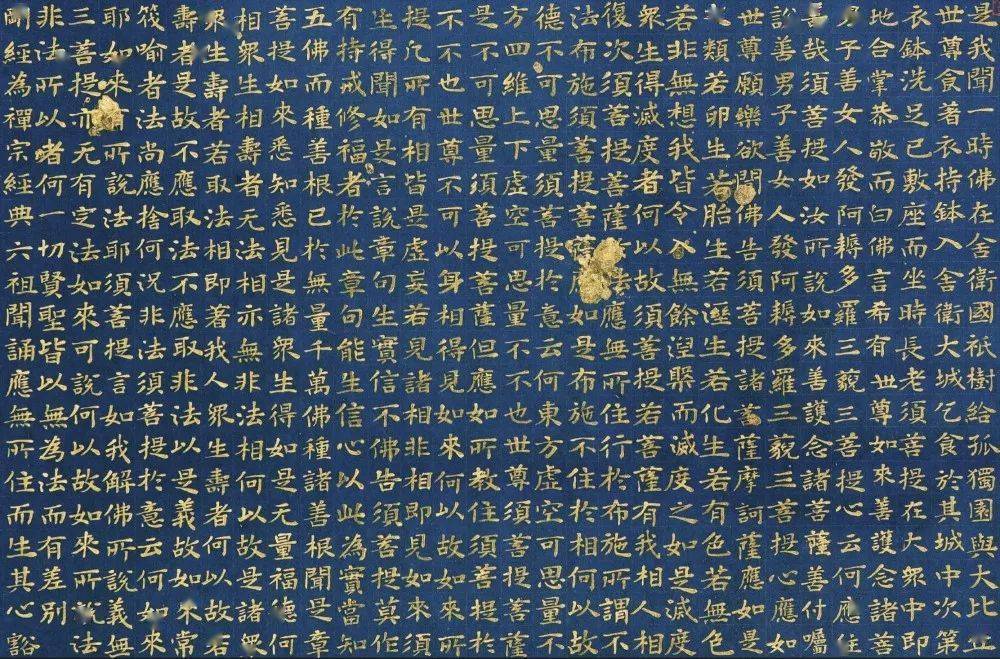 是我聞一時佛在舍衛國祇樹給孤獨園與大比丘
世尊食著衣持鉢入舍衛大城乞食於其城中次第
衣鉢洗足已敷座而坐時長老須菩提在大眾中即
地合掌恭敬而白佛言希有世尊如來善護念諸善
子善女人發阿耨多羅三藐三菩提心云何應住
善哉須菩提如汝所說如來善護念諸菩薩善付囑
說善男子善女人發阿耨多羅三藐三菩提心應如
世尊願樂欲聞佛告須菩提諸菩薩摩訶薩應如是
生類若卵生若胎生若溼生若化生若有色若無色
若非無想我皆令入無餘涅槃而滅度之如是滅度
眾生得滅度者何以故須菩提若菩薩有我相人相
復次須菩提菩薩法應無所住行於布施所謂不
法布施須菩提應如是布施不住於相何以故
德不可思量須菩提於意云何東方虛空可思量不
方四維上下虛空可思量不不也世尊須菩提菩薩
是不可思量須菩提菩薩但應如所教住須菩提於
不不也世尊不可以身相得見如來何以故如來所
提凡所有相皆是虛妄若見諸相非相即見如來須
生得聞如是言說章句生實信不佛告須菩提莫作
有持戒修福者於此章句能生信心以此為實當知
五佛而種善根已於無量千萬佛種諸善根聞是章
菩提如來悉知悉見是諸眾生得如是无量福德何
相眾生相壽者无法相亦無非法相何以故是諸眾
眾生壽者若取法相即著我人眾生壽者何以故若
壽者是故不應取法不應取非法以是義故如來常
筏喻者法尚應捨何況非法須菩提於意云何如來
耶如來所說法耶須菩提言如我解佛所說義無
三菩提亦无有定法如來可說何以故如來所說法
非法所以者何一切賢聖皆以無為法而有差別
剛經為禪宗經典六祖聞誦應無所住而生其心豁